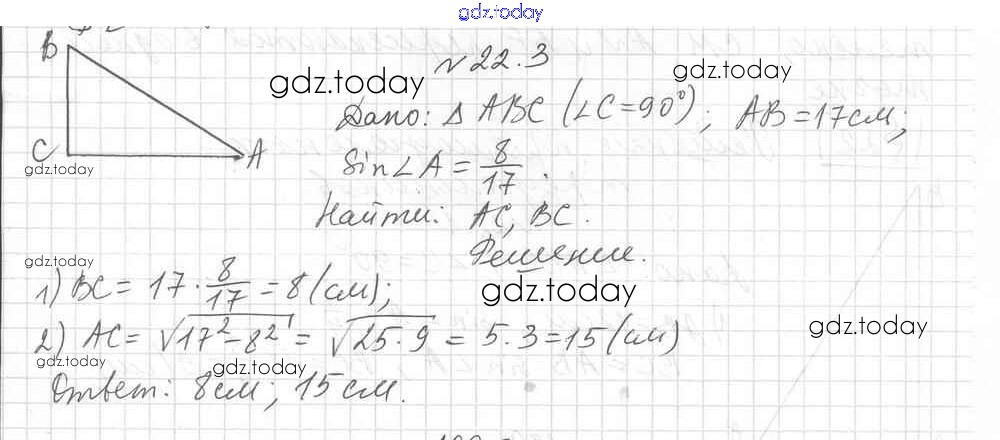 gdz.today
№ 22.3
B
gdz.today
gdz.today
Дано: Δ ABC (∠C=90°); AB=17см;
C
A
gdz.today
Sin∠A = 8/17.
Найти: AC, BC.
Решение.
gdz.today
1) BC = 17 · 8/17 = 8 (см);
gdz.today
2) AC = √17² - 8² = √25·9 = 5·3=15 (см)
gdz.today
gdz.today
gdz.today
Ответ: 8см; 15см.